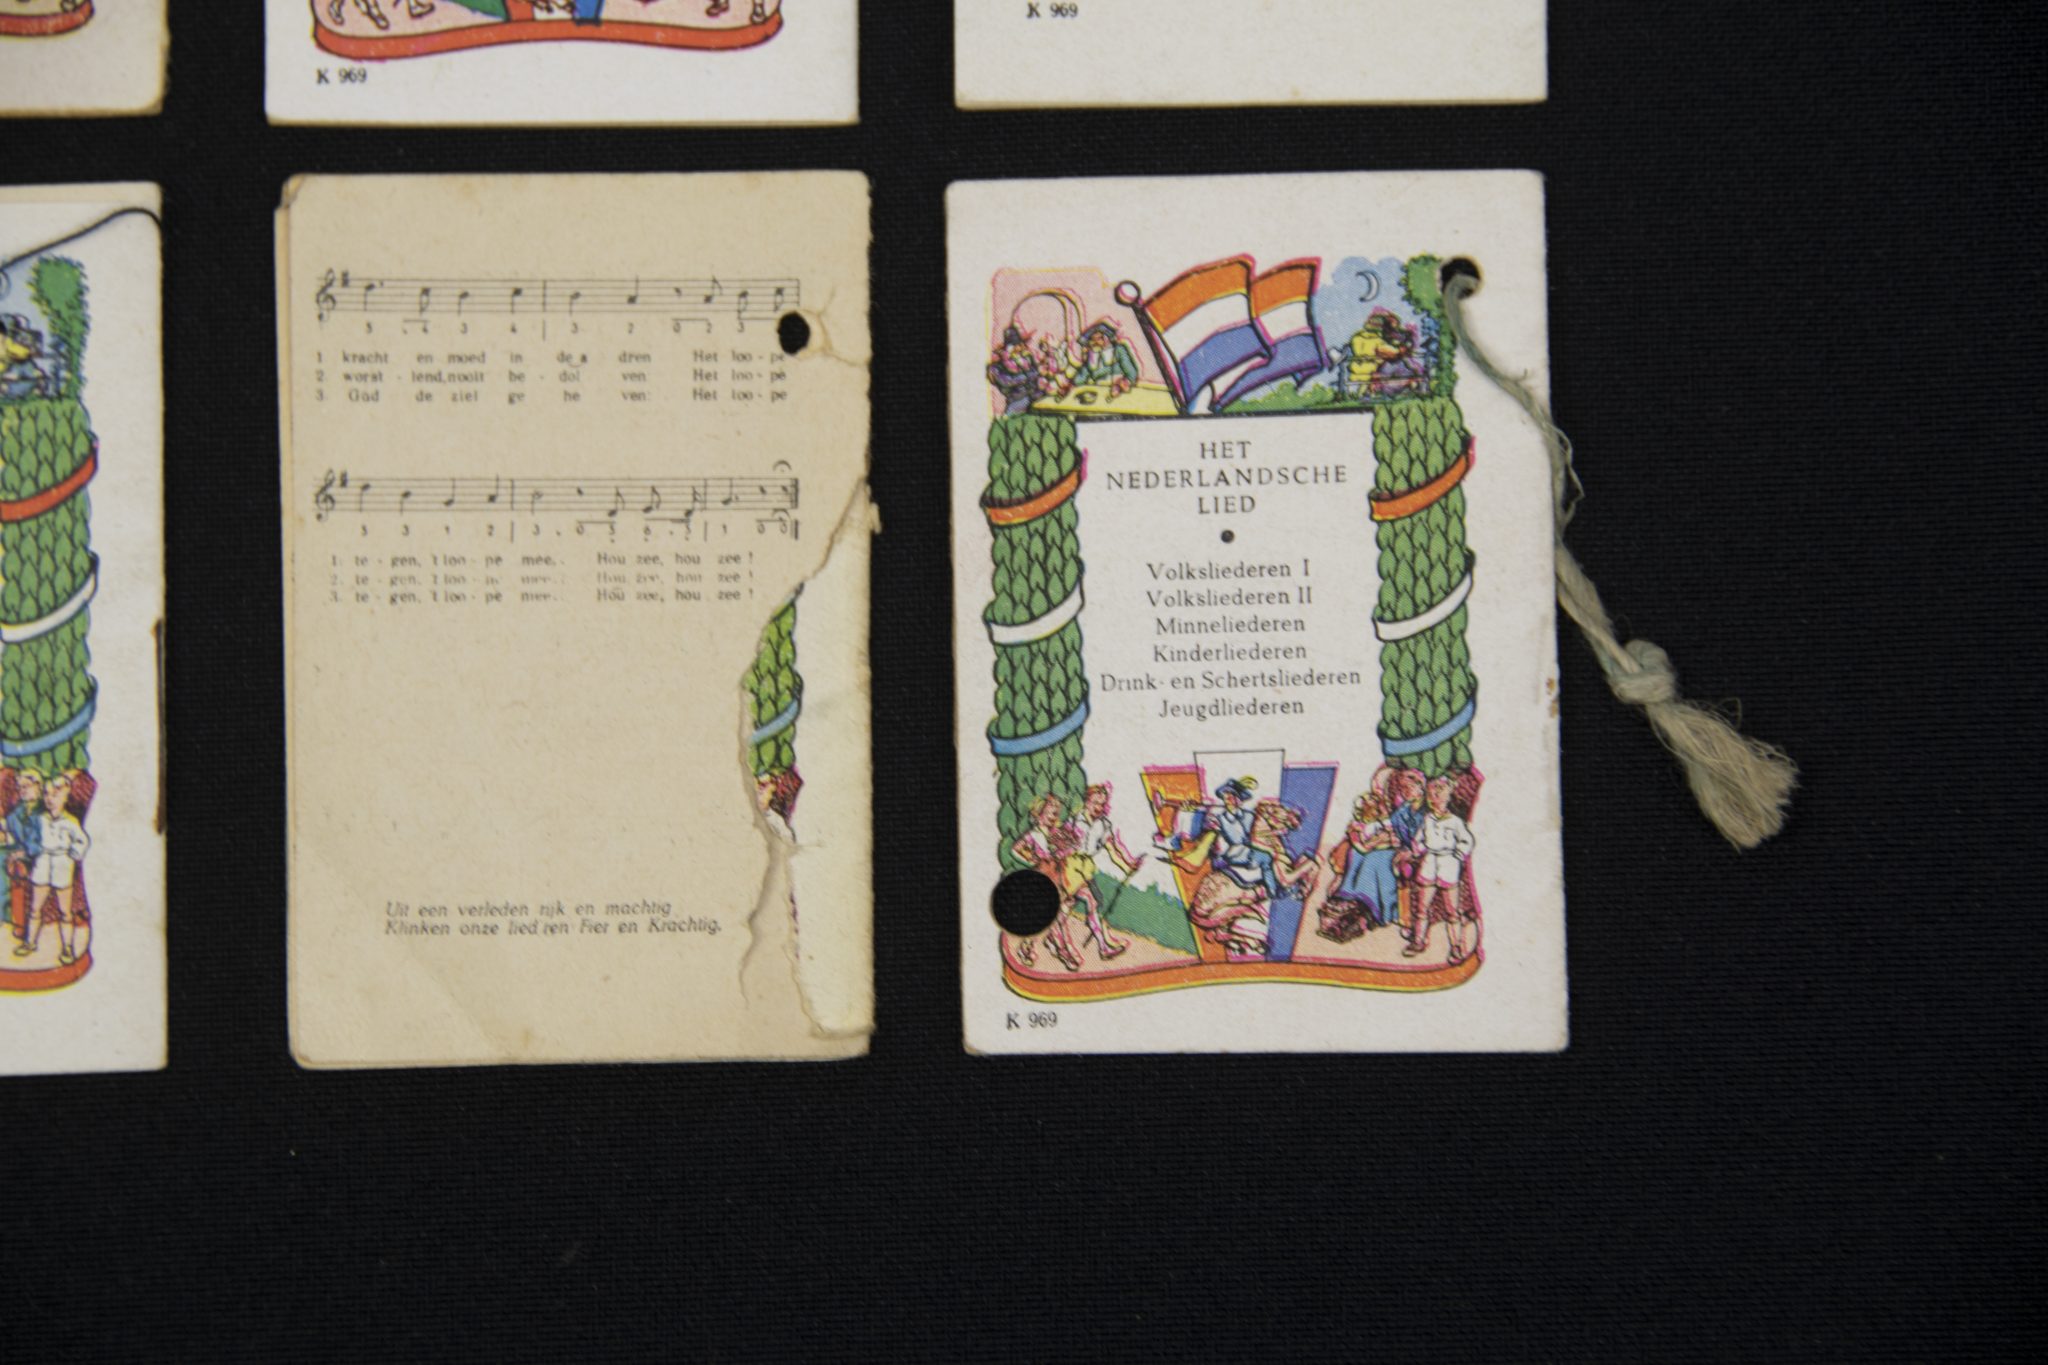 K 969
K 969
5 . 4 3 4 | 3 2 0 2 3
1 kracht en moed in de a dren Het loo - pe
2. worst - lend, nooit be - dol ven: Het loo - pe
3. God de ziel ge he ven: Het loo - pe
5 3 1 2 | 3 . 0 5 6 . 5 | 1 0 0 ||
1. te - gen, 't loo - pe mee.. Hou zee, hou zee !
2. te - gen, 't loo - pe mee.. Hou zee, hou zee !
3. te - gen, 't loo - pe mee.. Hou zee, hou zee !
Uit een verleden rijk en machtig
Klinken onze lied'ren Fier en Krachtig.
HET
NEDERLANDSCHE
LIED
Volksliederen I
Volksliederen II
Minneliederen
Kinderliederen
Drink- en Schertsliederen
Jeugdliederen
K 969